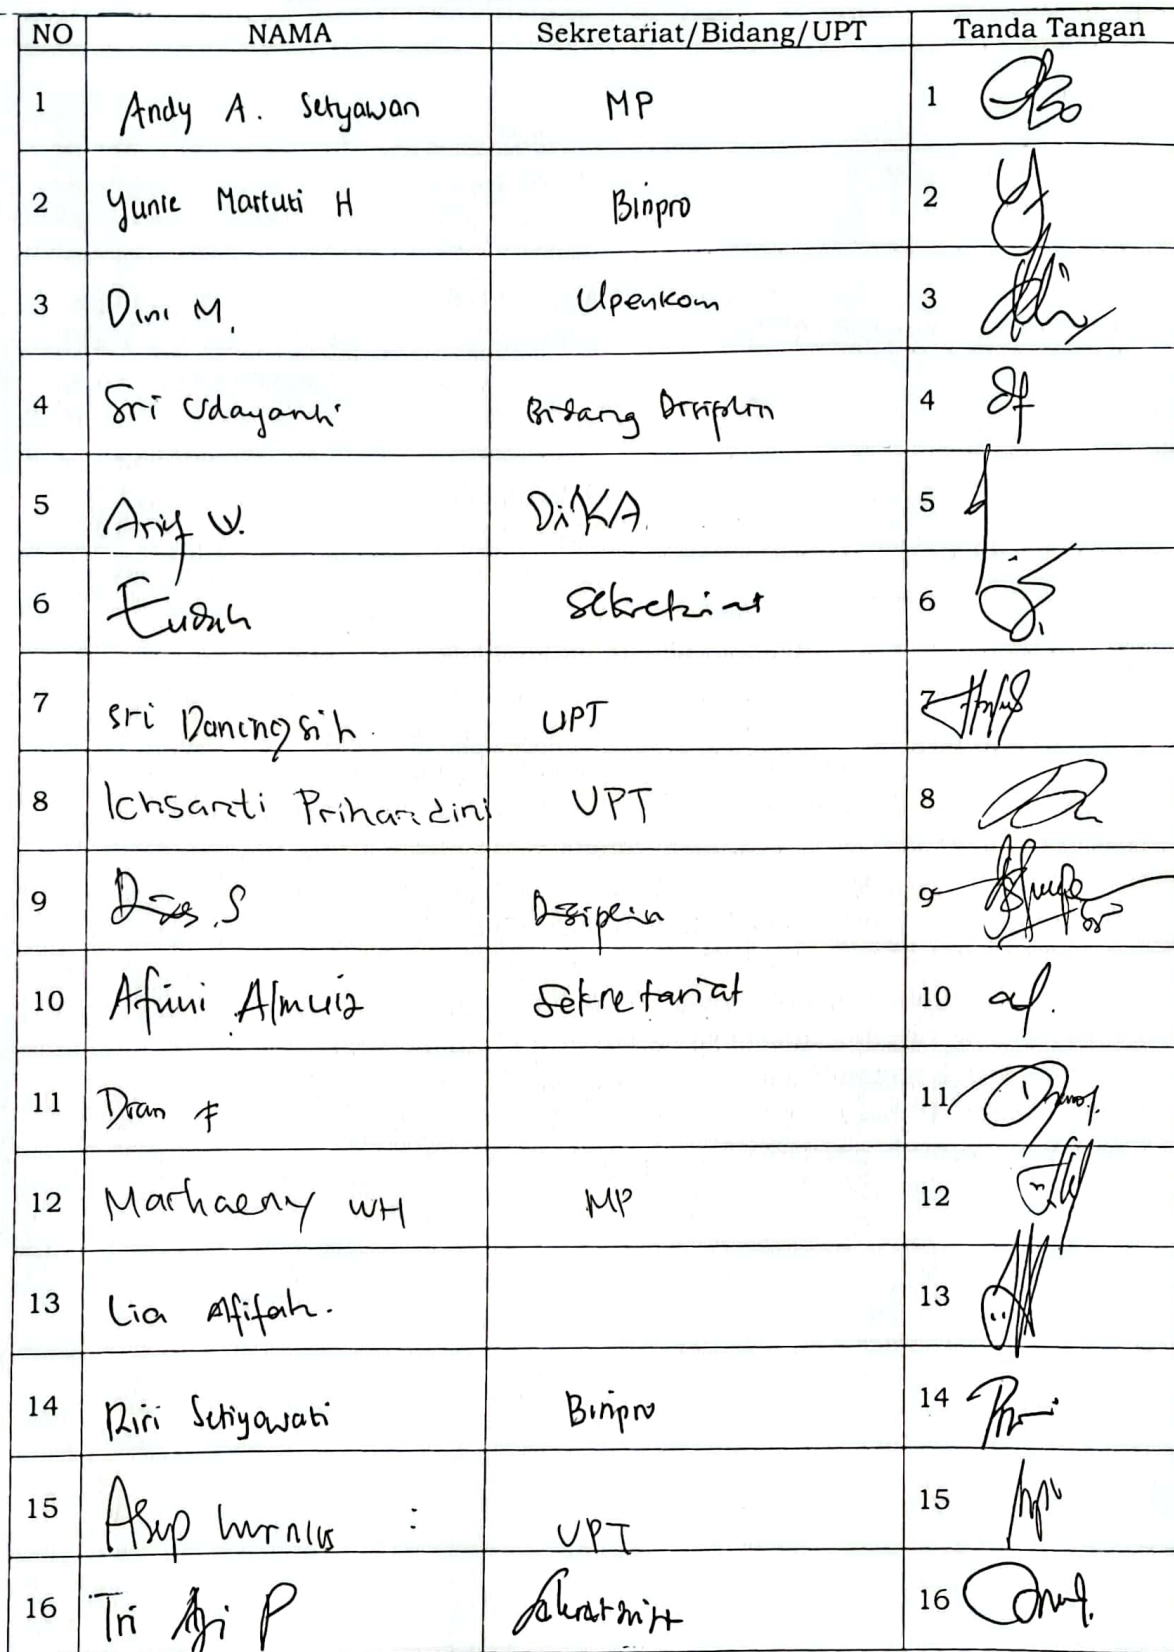 NO NAMA Sekretariat/Bidang/UPT Tanda Tangan
1 Andy A. Setyawan MP 1
2 Yunie Martuti H Binpro 2
3 Dini M. Upenkom 3
4 Sri Udayanti Bidang Disiplin 4
5 Arif W. DiKA 5
6 Endah Sekretariat 6
7 Sri Daningsih UPT 7
8 Ichsanti Prihandini UPT 8
9 S Disiplin 9
10 Afini Almuiz Sekretariat 10
11 Dian F 11
12 Marhaeny WH MP 12
13 Lia Afifah. 13
14 Riri Setiyowati Binpro 14
15 Asep kurnia : UPT 15
16 Tri Aji P Sekretariat 16